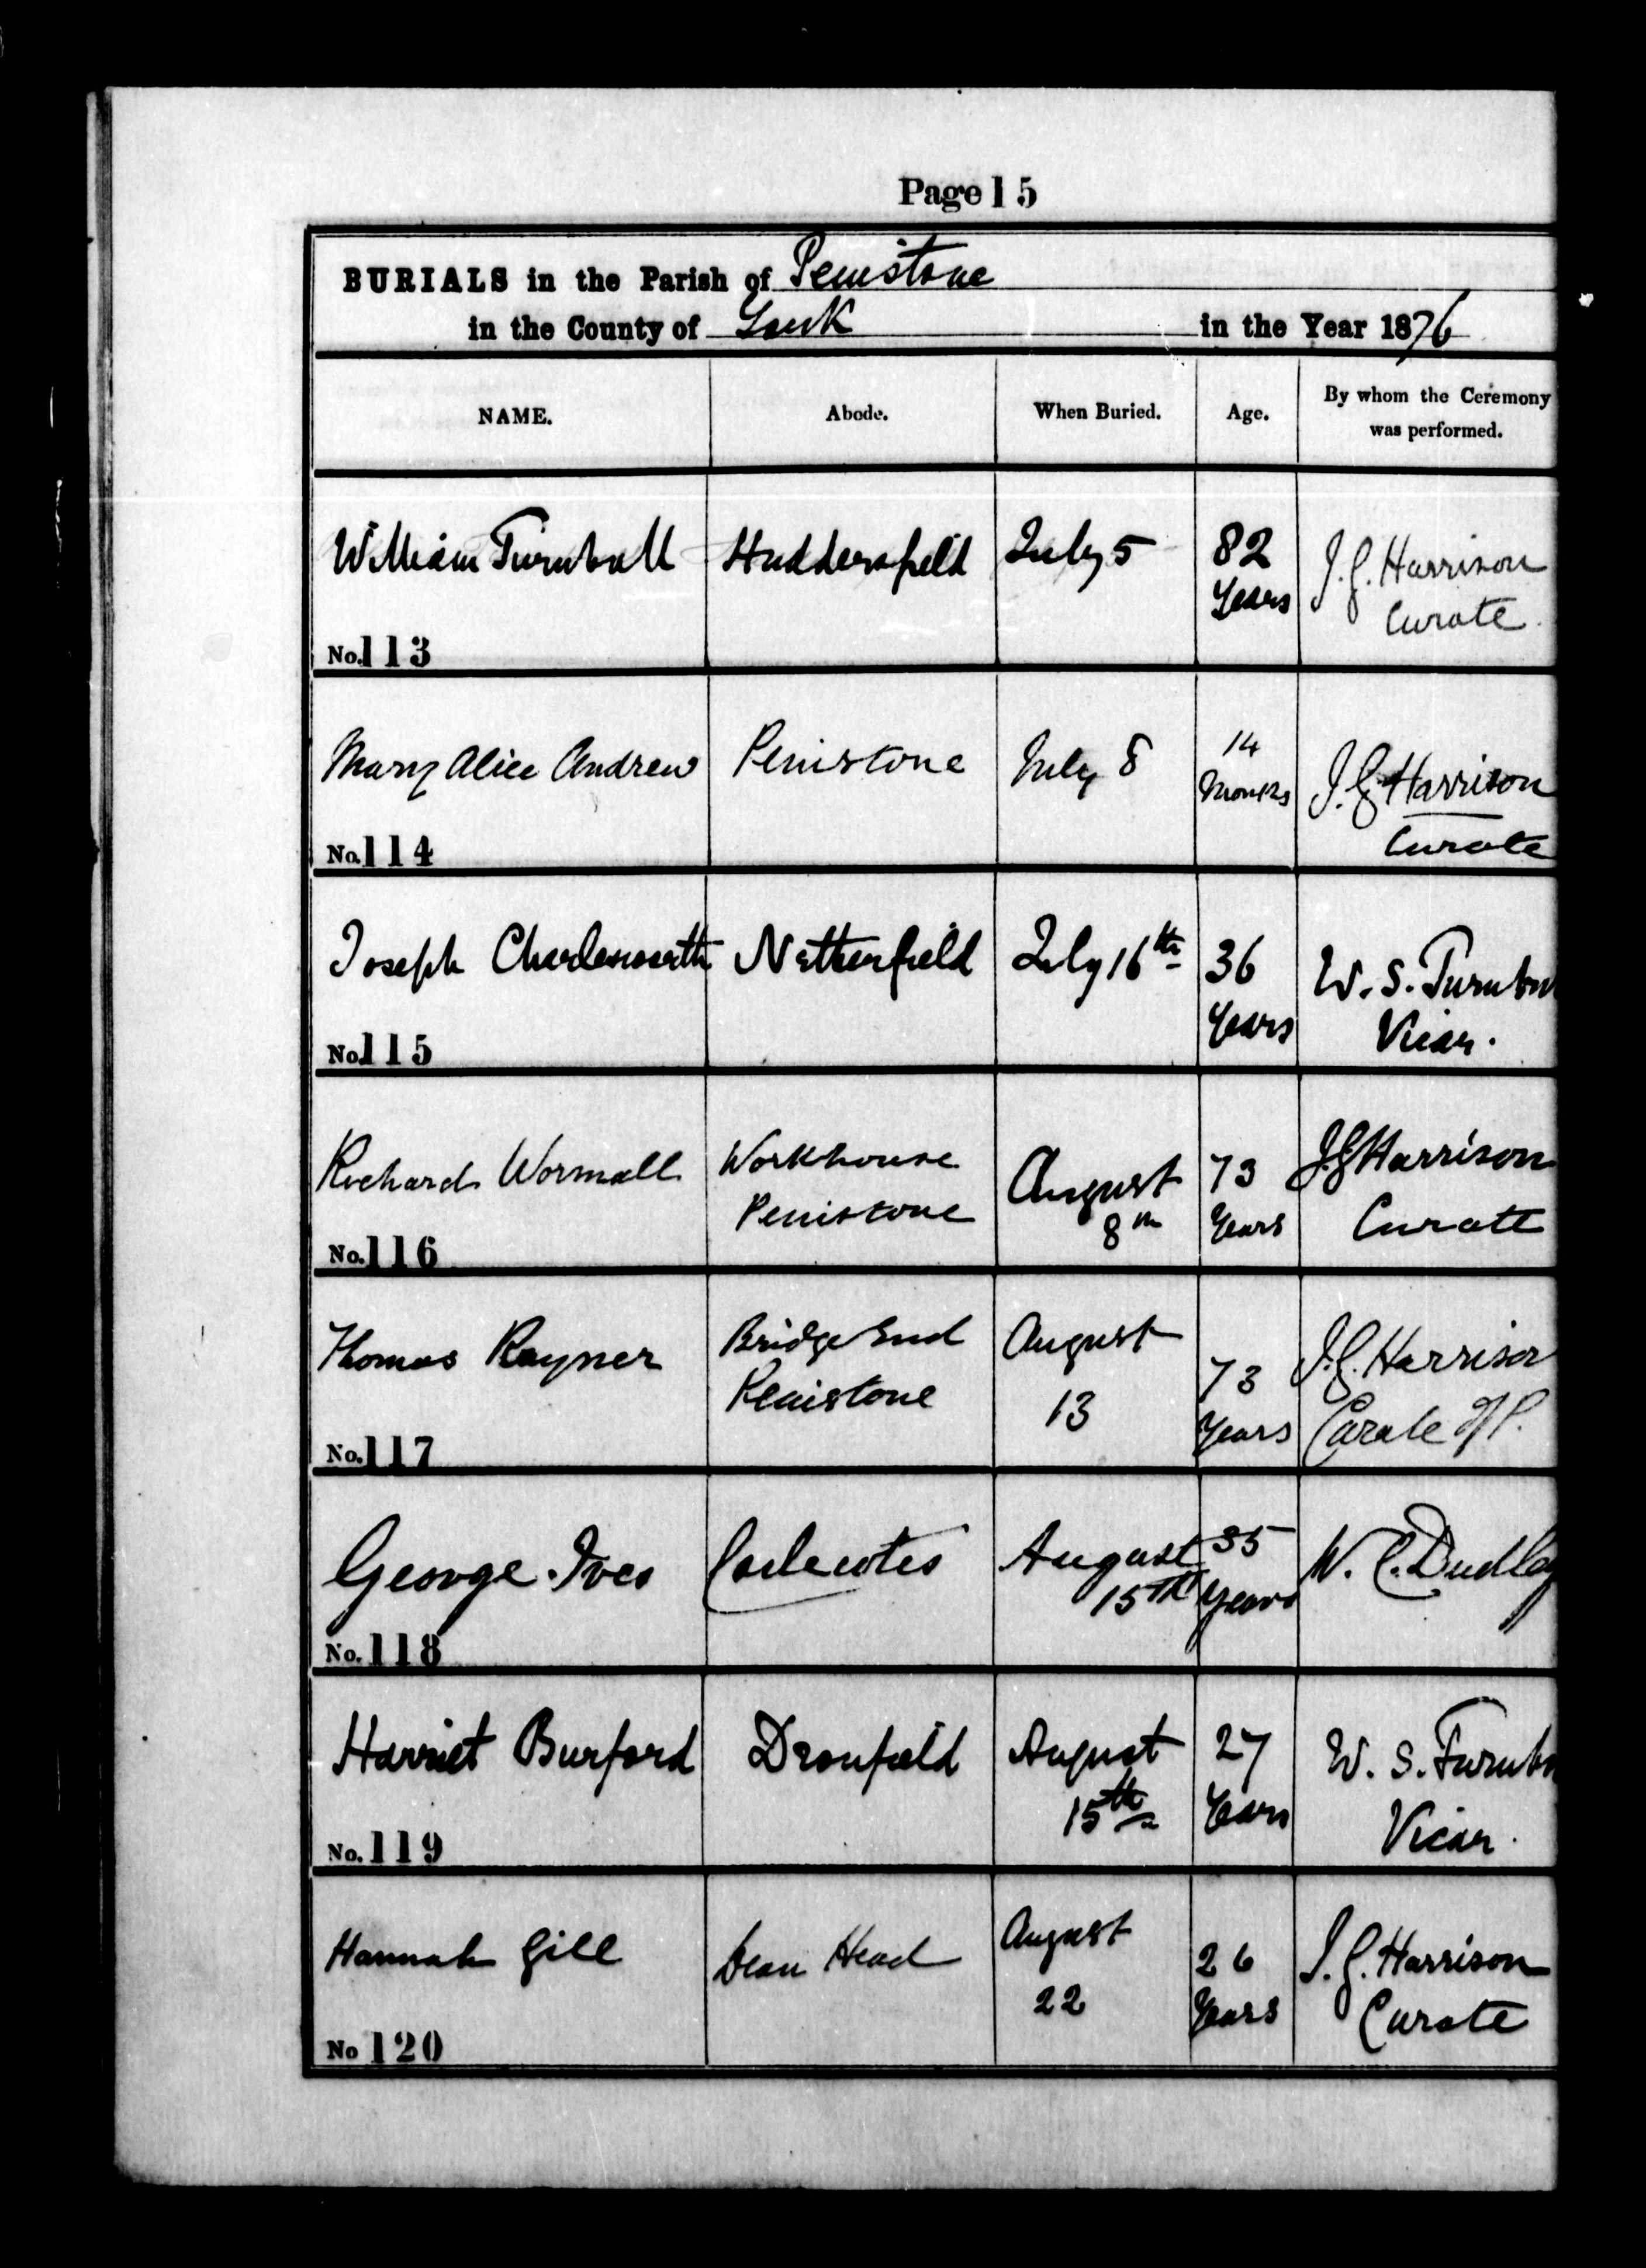 Page 15
BURIALS in the Parish of Penistone
in the County of York in the Year 1876
NAME. Abode. When Buried. Age. By whom the Ceremony was performed.
William Turnball Huddersfield July 5 82 Years J. G. Harrison Curate
No. 113
Mary Alice Andrew Penistone July 8 14 Months J. G. Harrison Curate
No. 114
Joseph Charlesworth Netherfield July 16th 36 Years W. S. Turnbu Vicar.
No. 115
Richard Wormall Workhouse Penistone August 8th 73 Years J. G. Harrison Curate
No. 116
Thomas Rayner Bridge End Penistone August 13 73 Years J. G. Harrison Curate
No. 117
George Ives Carlecotes August 15th 35 Years W. C. Dudley
No. 118
Harriet Burford Dronfield August 15th 27 Years W. S. Turnbu Vicar.
No. 119
Hannah Gill Dean Head August 22 26 Years J. G. Harrison Curate
No 120